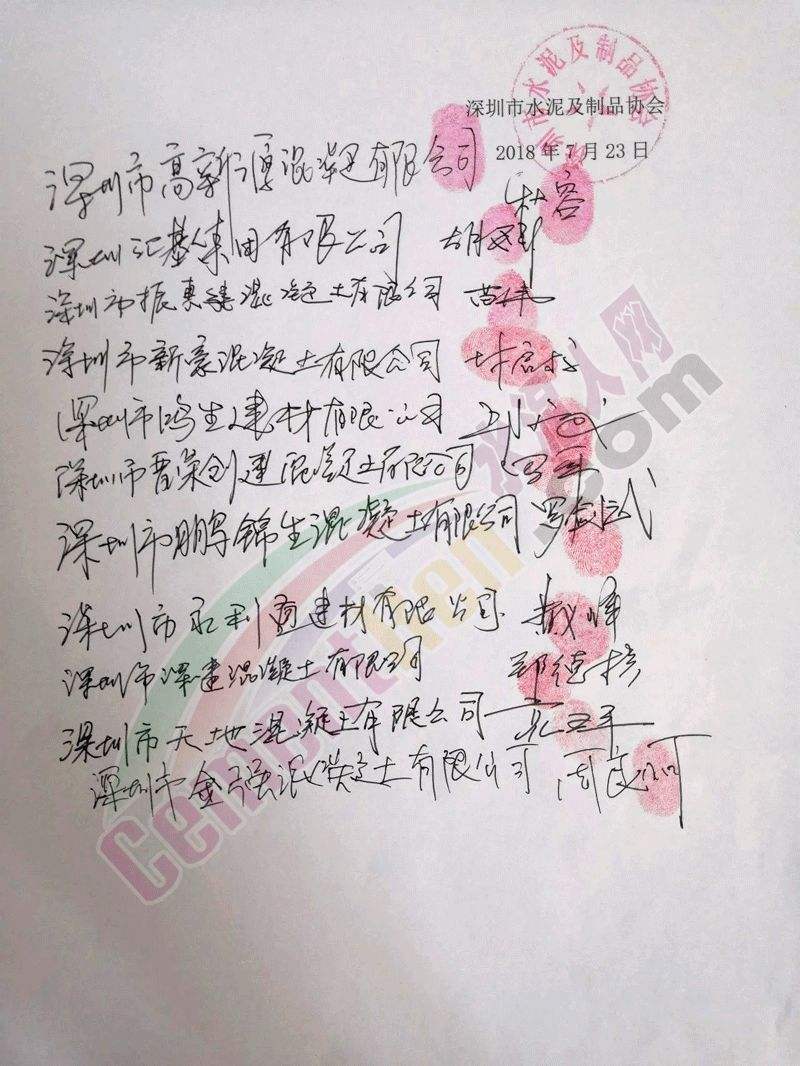 深圳市水泥及制品协会
深圳市水泥及制品协会
2018年7月23日
深圳市高新源混凝土有限公司 杜容
深圳汇基集团有限公司 胡
深圳市振惠建混凝土有限公司
深圳市新豪混凝土有限公司 林启
深圳市鸿生建材有限公司
深圳市晋荣创建混凝土有限公司
深圳市鹏锦生混凝土有限公司 罗
深圳市永利通建材有限公司 峰
深圳市深建混凝土有限公司 邱德
深圳市天地混凝土有限公司
深圳市金强混凝土有限公司 周
水泥人网
CementRen.com